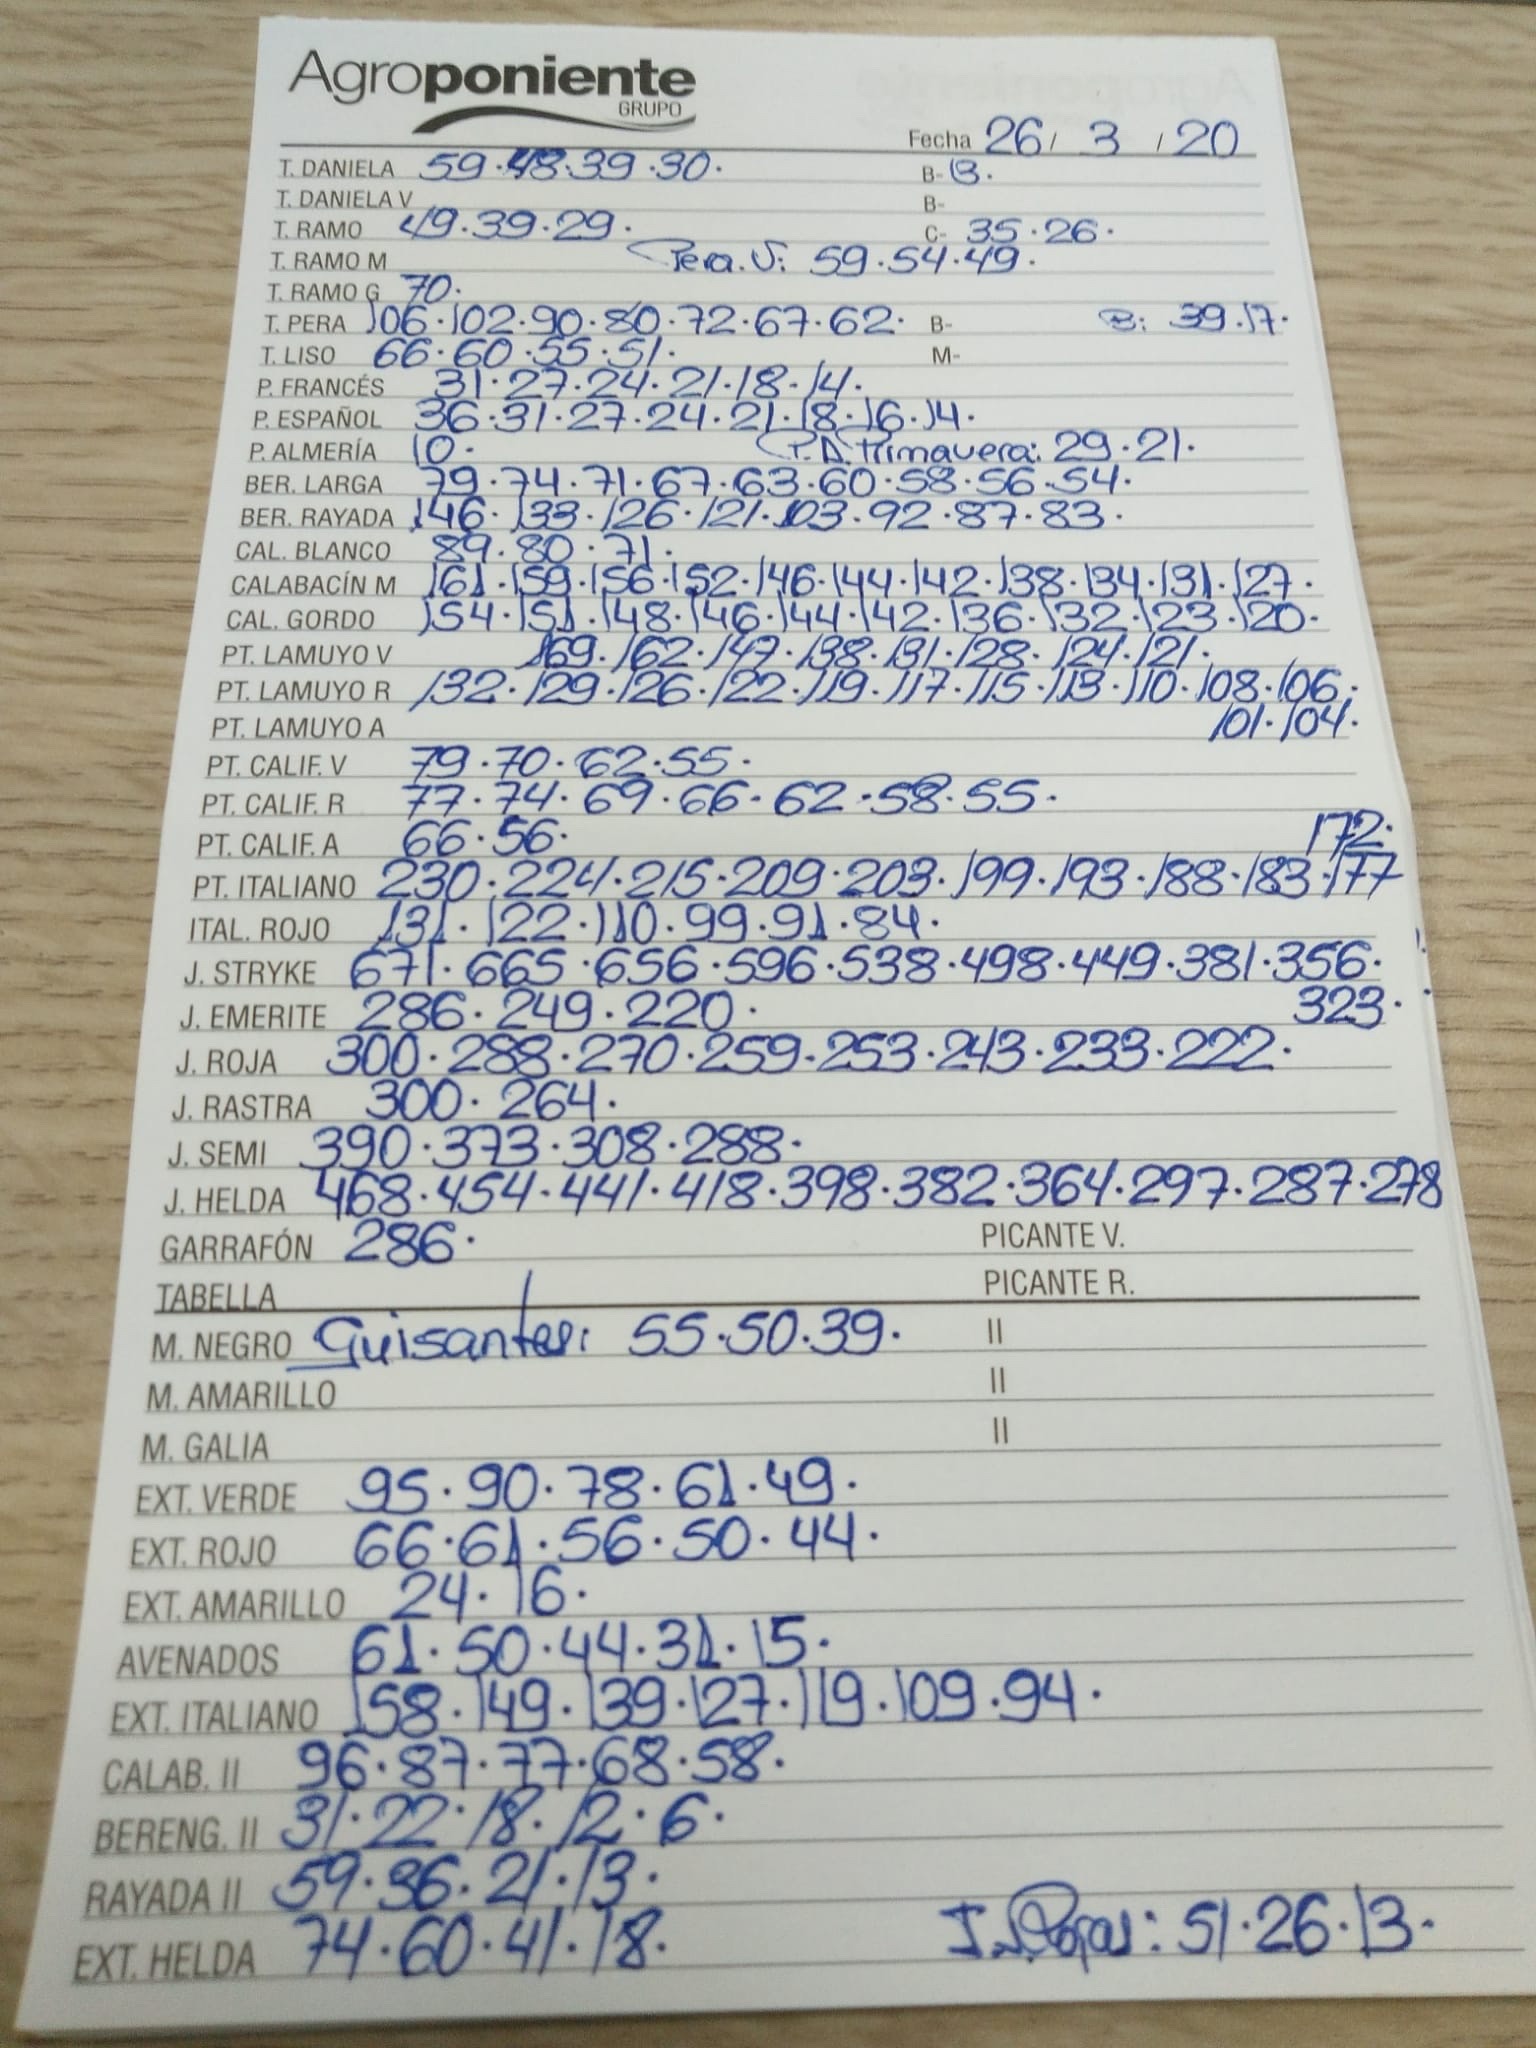 Agroponiente
GRUPO
Fecha 26/ 3 /20
T. DANIELA 59.48.39.30. B- 13.
T. DANIELA V B-
T. RAMO 49.39.29. C- 35.26.
T. RAMO M Pera.V: 59.54.49.
T. RAMO G 70.
T. PERA 106.102.90.80.72.67.62. B- B: 39.17.
T. LISO 66.60.55.51. M-
P. FRANCÉS 31.27.24.21.18.14.
P. ESPAÑOL 36.31.27.24.21.18.16.14.
P. ALMERÍA 10. P.A. Primavera: 29.21.
BER. LARGA 79.74.71.67.63.60.58.56.54.
BER. RAYADA 146.133.126.121.103.92.87.83.
CAL. BLANCO 89.80.71.
CALABACÍN M 161.159.156.152.146.144.142.138.134.131.127.
CAL. GORDO 154.151.148.146.144.142.136.132.123.120.
PT. LAMUYO V 169.162.147.138.131.128.124.121.
PT. LAMUYO R 132.129.126.122.119.117.115.113.110.108.106.
PT. LAMUYO A 101.104.
PT. CALIF. V 79.70.62.55.
PT. CALIF. R 77.74.69.66.62.58.55.
PT. CALIF. A 66.56. 172.
PT. ITALIANO 230.224.215.209.203.199.193.188.183.177
ITAL. ROJO 131.122.110.99.91.84.
J. STRYKE 671.665.656.596.538.498.449.381.356.
J. EMERITE 286.249.220. 323.
J. ROJA 300.288.270.259.253.243.233.222.
J. RASTRA 300.264.
J. SEMI 390.373.308.288.
J. HELDA 468.454.441.418.398.382.364.297.287.278
GARRAFÓN 286. PICANTE V.
TABELLA PICANTE R.
M. NEGRO Guisantes: 55.50.39. II
M. AMARILLO II
M. GALIA II
EXT. VERDE 95.90.78.61.49.
EXT. ROJO 66.61.56.50.44.
EXT. AMARILLO 24.16.
AVENADOS 61.50.44.31.15.
EXT. ITALIANO 158.149.139.127.119.109.94.
CALAB. II 96.87.77.68.58.
BERENG. II 31.22.18.12.6.
RAYADA II 59.36.21.13.
EXT. HELDA 74.60.41.18. 51.26.13.